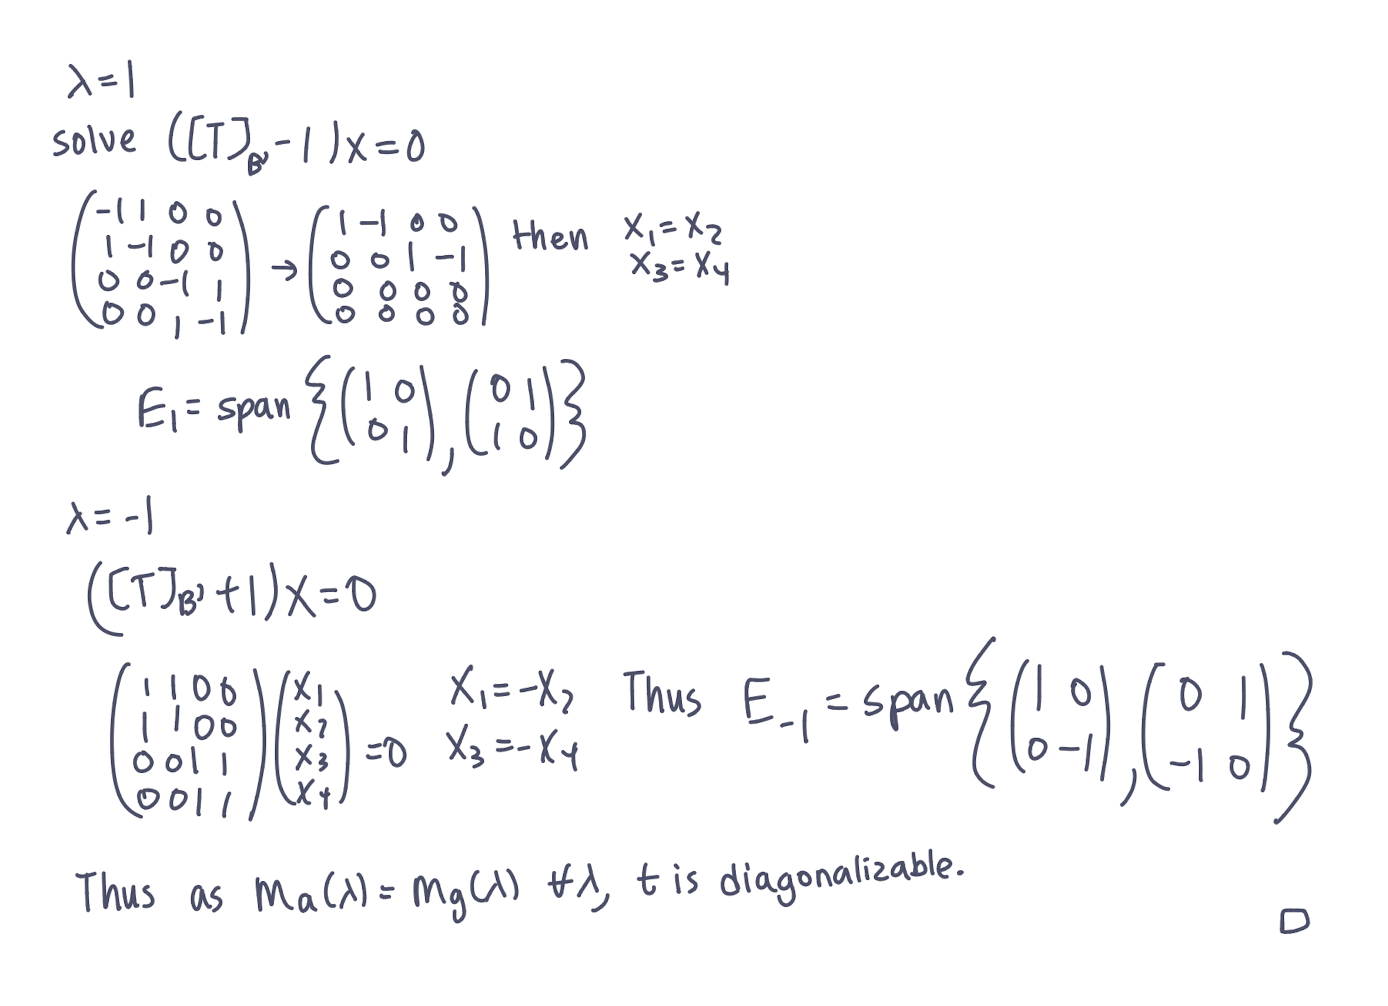 λ=1
solve ([T]_B' - 1)x=0
(-1 1 0 0; 1 -1 0 0; 0 0 -1 1; 0 0 1 -1) → (1 -1 0 0; 0 0 1 -1; 0 0 0 0; 0 0 0 0) then x₁=x₂ x₃=x₄
E₁= span {(1 0; 0 1), (0 1; 1 0)}
λ= -1
([T]_B' +1)x=0
(1 1 0 0; 1 1 0 0; 0 0 1 1; 0 0 1 1)(x₁; x₂; x₃; x₄) =0 x₁=-x₂ x₃=-x₄ Thus E₋₁ = span {(1 0; 0 -1), (0 1; -1 0)}
Thus as ma(λ)= mg(λ) ∀λ, t is diagonalizable.
□